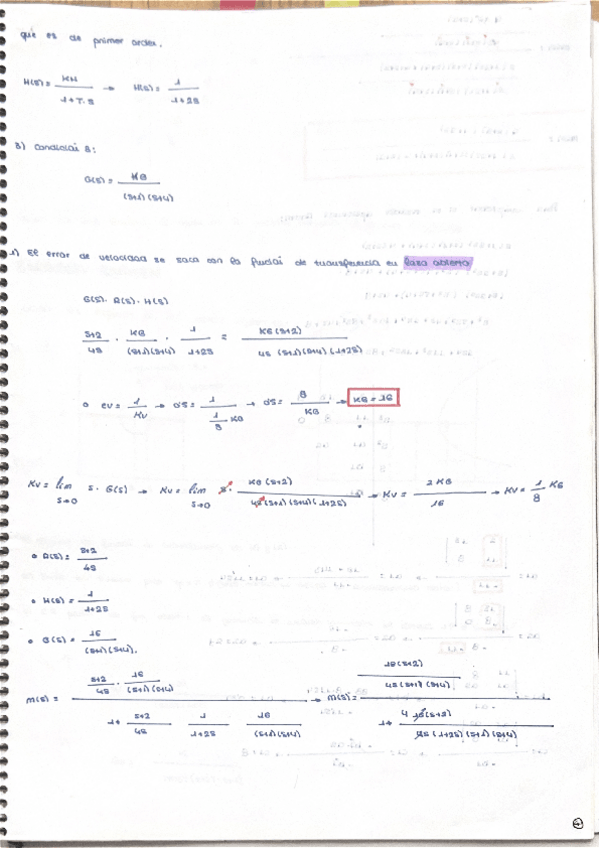 que es de primer orden.
H(s) = KH / 1+T.s → H(s) = 1 / 1+2s
3) Condición 3:
G(s) = KG / (s+1)(s+4)
1) El error de velocidad se saca con la función de transferencia en lazo abierto
G(s) · R(s) · H(s)
s+2 / 4s · KG / (s+1)(s+4) · 1 / 1+2s = KG(s+2) / 4s (s+1)(s+4)(1+2s)
o ev = 1 / Kv → 0'5 = 1 / 1/8 KG → 0'5 = 8 / KG → KG = 16
Kv = lim s→0 s · G(s) → Kv = lim s→0 s · KG(s+2) / 4s(s+1)(s+4)(1+2s) → Kv = 2KG / 16 → Kv = 1/8 KG
o R(s) = s+2 / 4s
o H(s) = 1 / 1+2s
o G(s) = 16 / (s+1)(s+4).
M(s) = s+2 / 4s · 16 / (s+1)(s+4) / 1+ s+2 / 4s 1 / 1+2s 16 / (s+1)(s+4) → M(s) = 16(s+2) / 4s(s+1)(s+4) / 1+ 4 16(s+2) / 4s(1+2s)(s+1)(s+4)